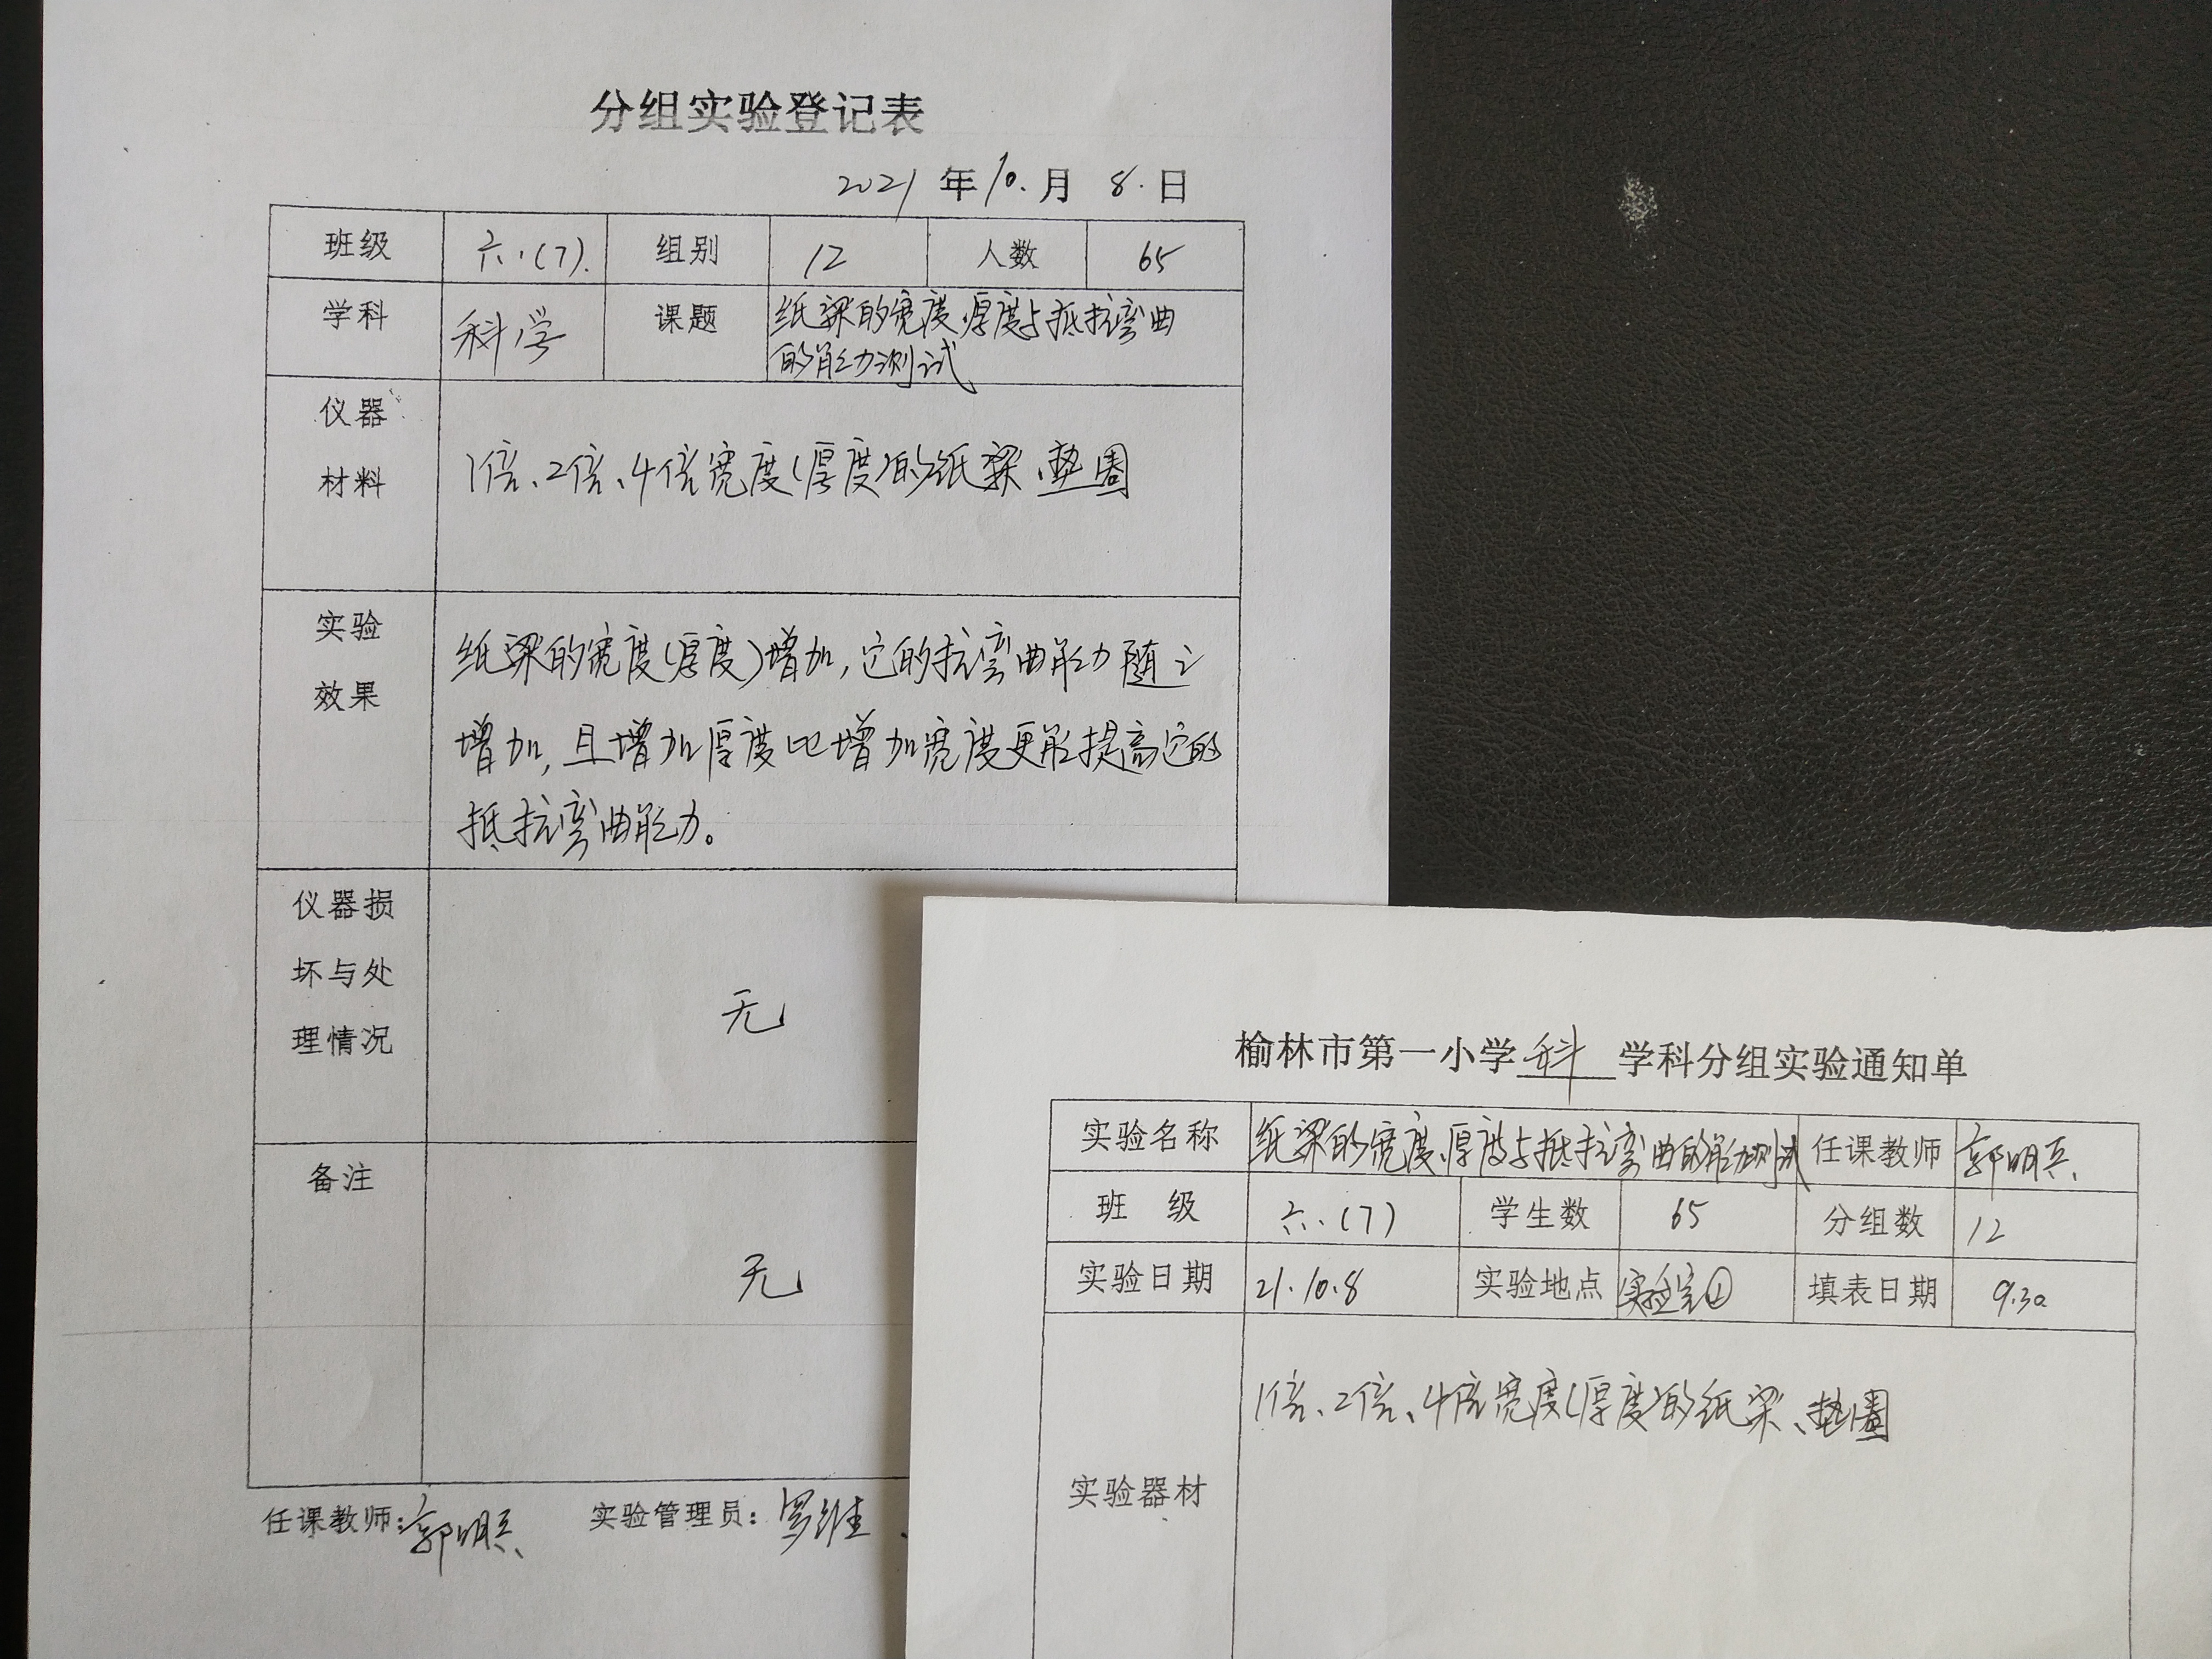 分组实验登记表
2021 年 10. 月 8. 日
班级 六.(7). 组别 12 人数 65
学科 科学 课题 纸梁的宽度、厚度与抵抗弯曲
的能力测试
仪器
材料
1倍、2倍、4倍宽度(厚度)的纸梁、垫圈
实验
效果
纸梁的宽度(厚度)增加,它的抗弯曲能力随之
增加,且增加厚度比增加宽度更能提高它的
抵抗弯曲能力。
仪器损
坏与处
理情况
无
备注
无
任课教师:郭明兵 实验管理员:罗维
榆林市第一小学 科 学科分组实验通知单
实验名称 纸梁的宽度、厚度与抵抗弯曲的能力测试 任课教师 郭明兵
班 级 六.(7) 学生数 65 分组数 12
实验日期 21.10.8 实验地点 实验室① 填表日期 9.30
1倍、2倍、4倍宽度(厚度)的纸梁、垫圈
实验器材